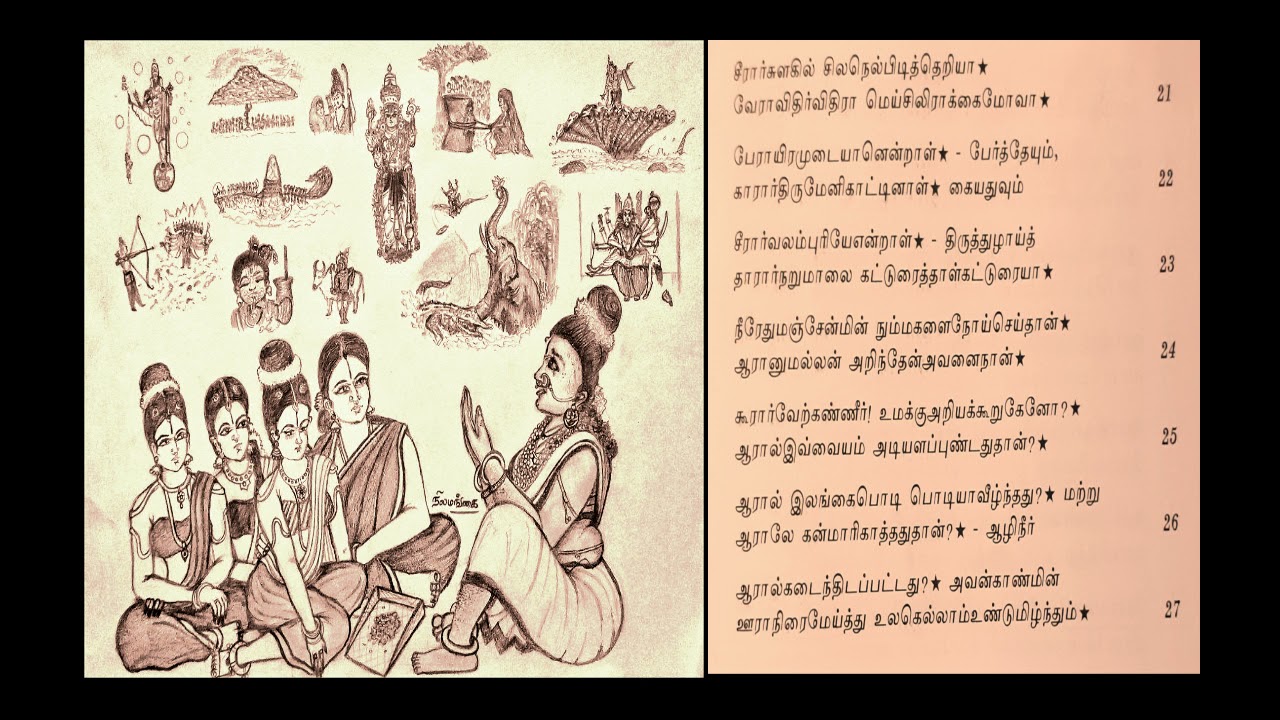 நிலமங்கை
சீரார்சுளகில் சிலநெல்பிடித்தெறியா★
வேராவிதிர்விதிரா மெய்சிலிராக்கைமோவா★ 21
பேராயிரமுடையானென்றாள்★ - பேர்த்தேயும்,
காரார்திருமேனிகாட்டினாள்★ கையதுவும் 22
சீரார்வலம்புரியேஎன்றாள்★ - திருத்துழாய்த்
தாரார்நறுமாலை கட்டுரைத்தாள்கட்டுரையா★ 23
நீரேதுமஞ்சேன்மின் நும்மகளைநோய்செய்தான்★
ஆரானுமல்லன் அறிந்தேன்அவனைநான்★ 24
கூரார்வேற்கண்ணீர்! உமக்குஅறியக்கூறுகேனோ?★
ஆரால்இவ்வையம் அடியளப்புண்டதுதான்?★ 25
ஆரால் இலங்கைபொடி பொடியாவீழ்ந்தது?★ மற்று
ஆராலே கன்மாரிகாத்ததுதான்?★ - ஆழிநீர் 26
ஆரால்கடைந்திடப்பட்டது?★ அவன்காண்மின்
ஊராநிரைமேய்த்து உலகெல்லாம்உண்டுமிழ்ந்தும்★ 27